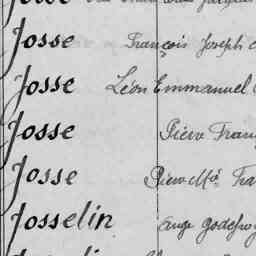 Josse François Joseph
Josse Léon Emmanuel
Josse Pierre
Josse Pierre Mé
Josselin Ange Godefroy